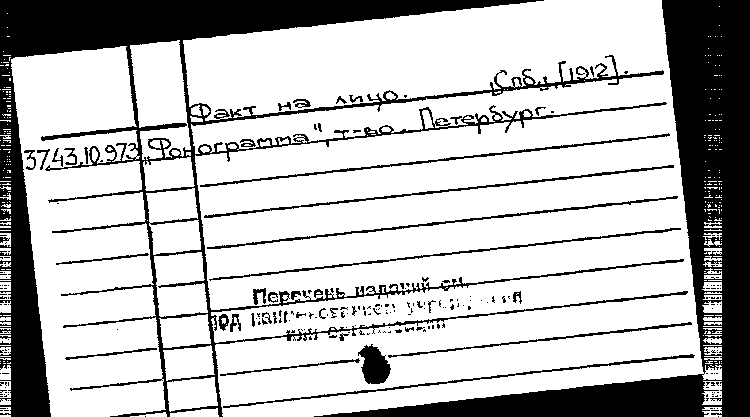 Факт на лицо. Спб., [1912].
37.43.10.973 „Фонограмма", т-во. Петербург.
Перечень изданий см.
под наименованием учреждения
или организации